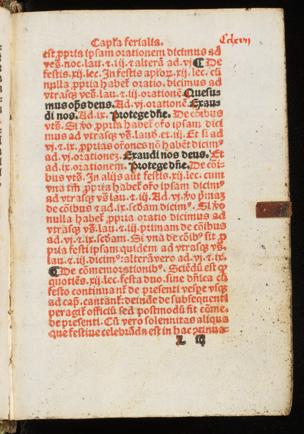 Capl'a ferialia. Cclxvij
est ꝓpria ipsam orationem dicimus ad
veš. noc. lau. ⁊. iij. ⁊ alterā ad. vj. ¶ De
festis. xij. lec. In festis aplo⁊. xij. lec. cū
nulla ꝓpria habet oratio. dicimus ad
vtrasqʒ veš. lau. ⁊. iij. orationē Quesu-
mus oπs deus. Ad. vj. orationē. Exau
di nos. Ad. ix. Protege dn̄e. De cōibus
vtš. Si ꝟo ꝓpria habet ofō ipsam dici
mus ad vtrasqʒ vtš. lauď. et. iij. Et si ad
vj. ⁊. ix. ꝓprias ofones nō habēt dicimꝰ
ad. vj. orationez. Exaudi nos deus. Et
ad. ix. orationem. Protege dn̄e. De cōi-
bus vtš. In alijs aūt festis. xij. lec. cum
vna tm̄ ꝓpria habet ofo ipsam dicimꝰ
ad vtrasqʒ vtš lau. ⁊. iij. Ad. vj. ꝟo pᵃmaʒ
de cōibus ⁊ ad. ix. scḋam dicimꝰ. Si ꝟo
nulla habet ꝓpria oratio dicimus ad
vtrasqʒ vtš. lau. ⁊. iij. primam de cōibus
ad. vj. ⁊. ix. scḋam. Si vna de cōibꝰ sit ꝓ
pria festi ipsam quidem ad vtrasqʒ vtš.
lau. ⁊. iij. dicimꝰ: alterā vero ad. vj. ⁊. ix.
¶ De cōmemorationibꝰ. Sciēdū est ꝙ
quotiēs. xij. lec. festa duo. siue dn̄ica cū
festo continuant̄ de presenti vespe vsqʒ
ad cap. cantant̄: deinde de subsequenti
peragit̄ officiū sed postmodū fit cōme.
de presenti. Cū vero solennitas aliqua
que festiue celebrāda est in hac priuata-